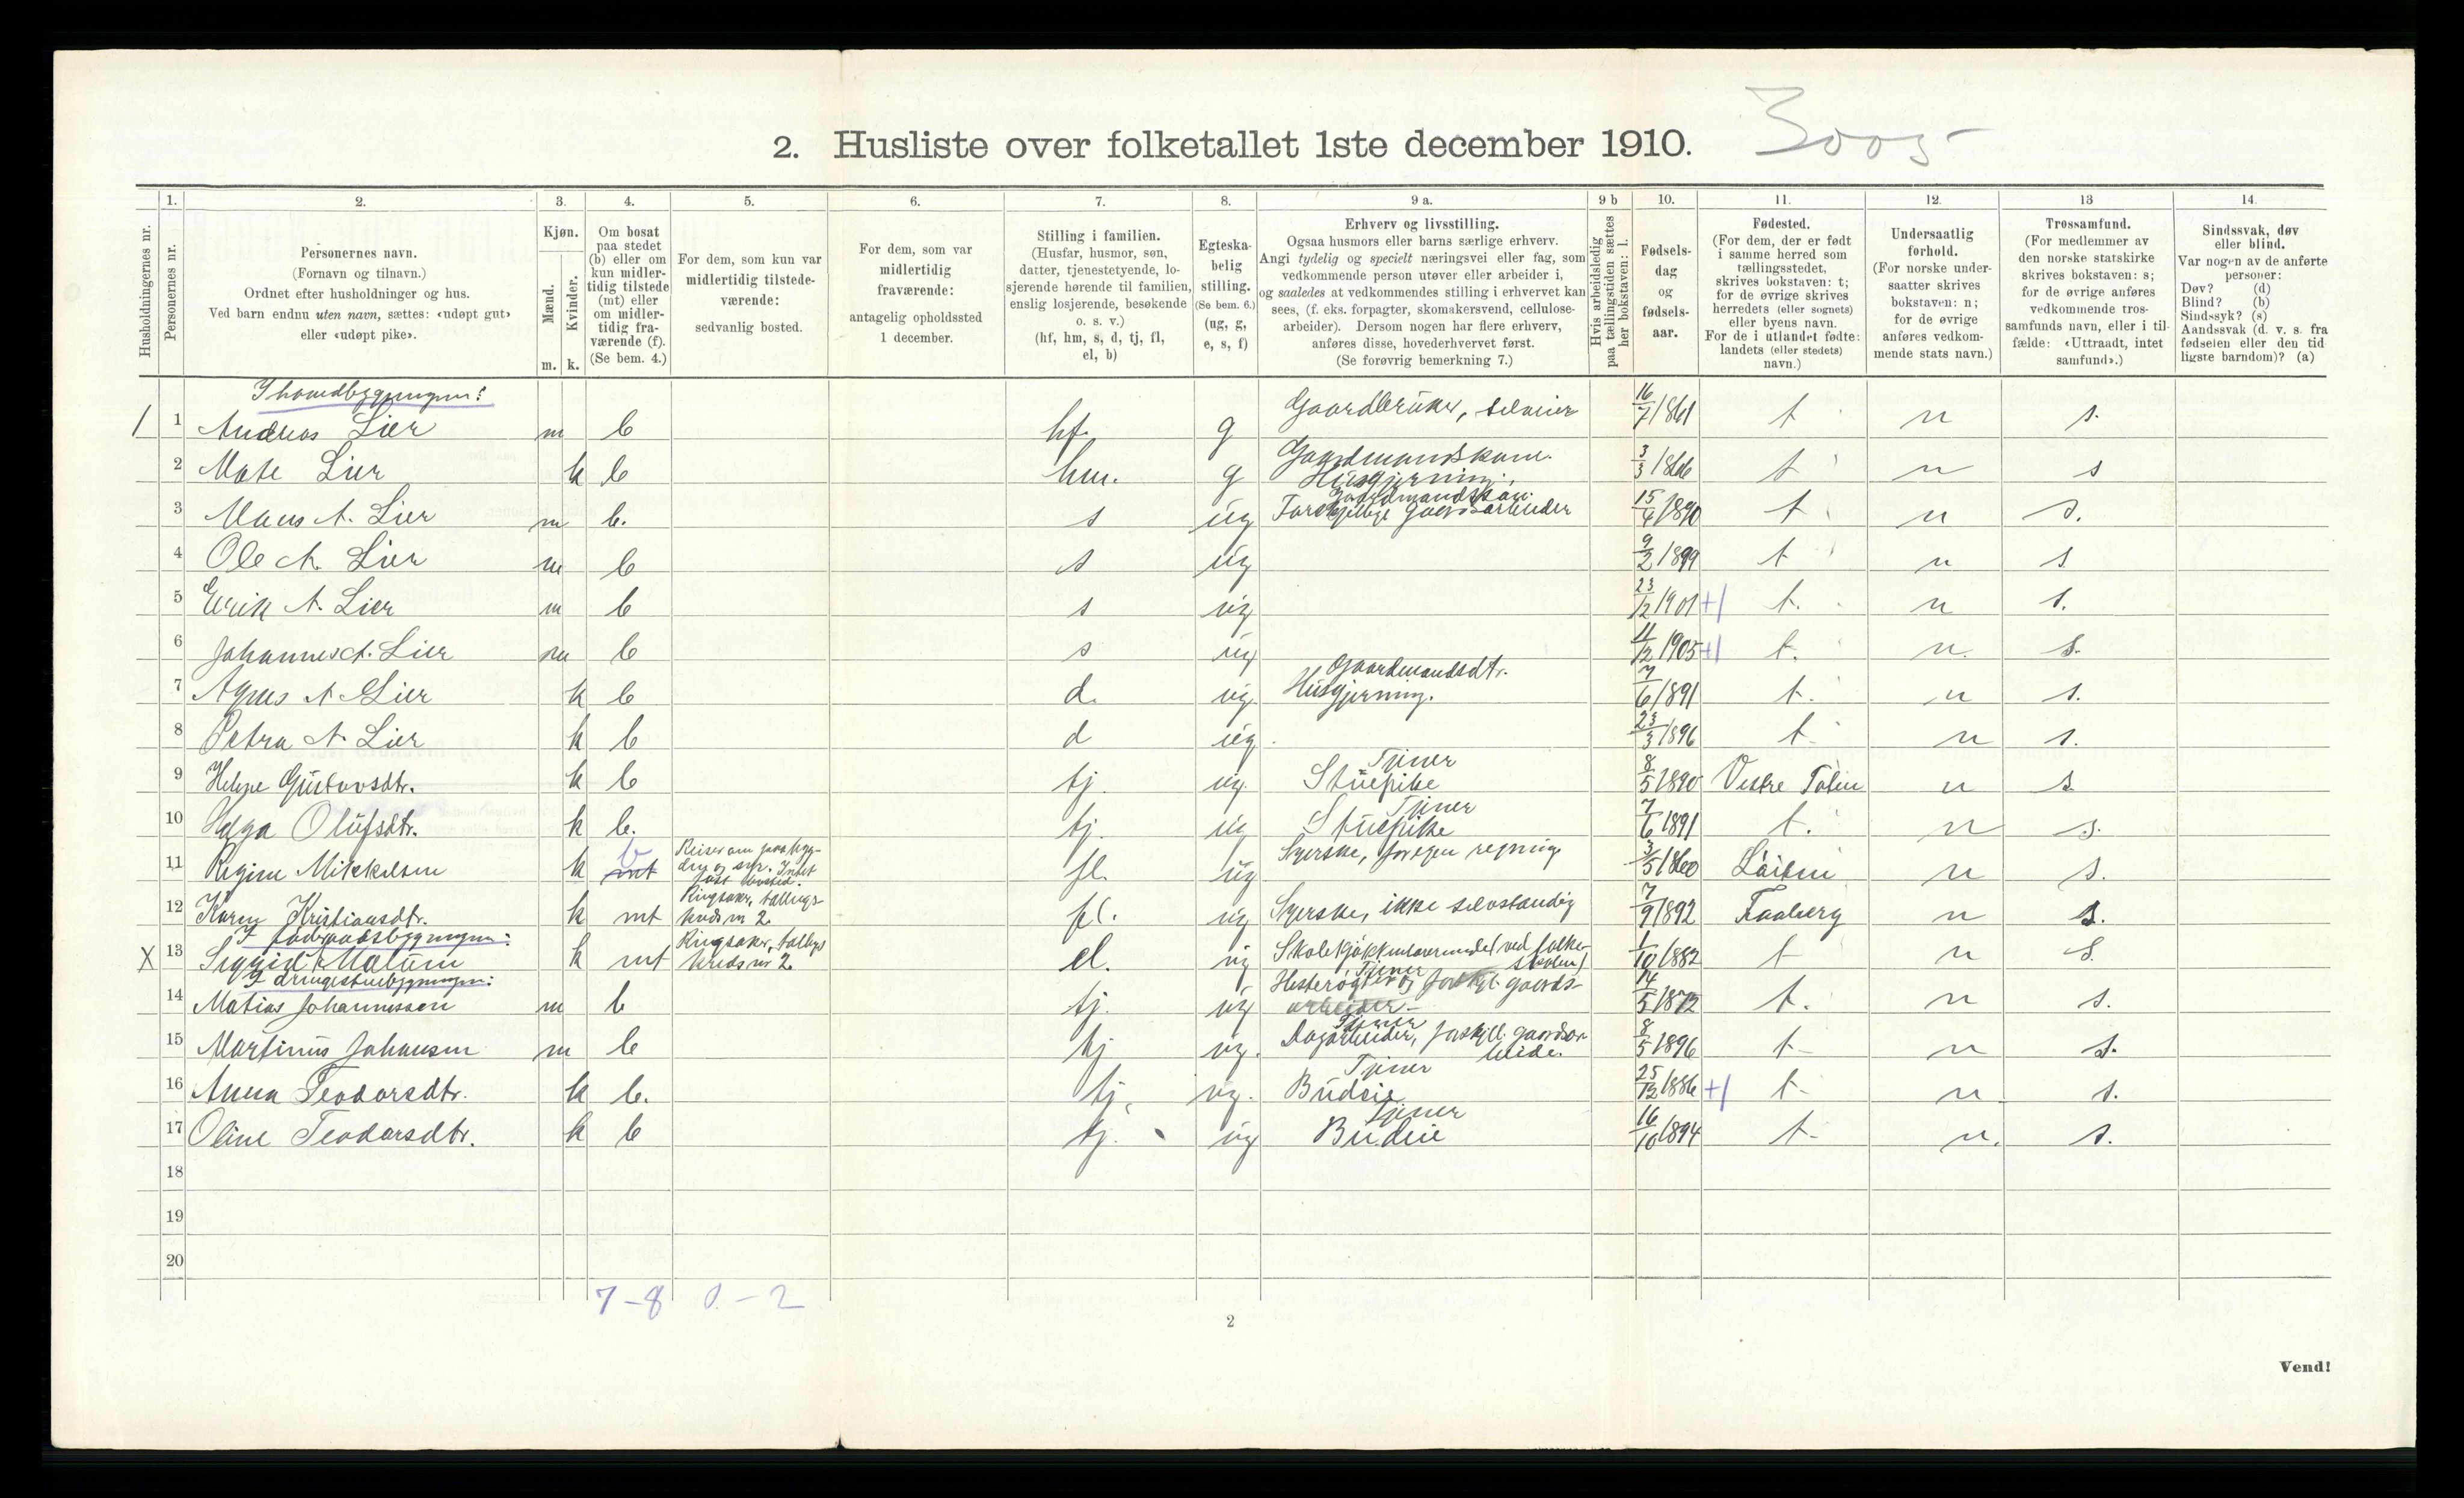 2. Husliste over folketallet 1ste december 1910.
1. 2. 3. 4. 5. 6. 7. 8. 9 a. 9 b 10. 11. 12. 13 14.
Husholdningernes nr.
Personernes nr.
Personernes navn.
(Fornavn og tilnavn.)
Ordnet efter husholdninger og hus.
Ved barn endnu uten navn, sættes: «udøpt gut»
eller «udøpt pike».
Kjøn.
Mænd.
Kvinder.
m. k.
Om bosat
paa stedet
(b) eller om
kun midler-
tidig tilstede
(mt) eller
om midler-
tidig fra-
værende (f).
(Se bem. 4.)
For dem, som kun var
midlertidig tilstede-
værende:
sedvanlig bosted.
For dem, som var
midlertidig
fraværende:
antagelig opholdssted
1 december.
Stilling i familien.
(Husfar, husmor, søn,
datter, tjenestetyende, lo-
sjerende hørende til familien,
enslig losjerende, besøkende
o. s. v.)
(hf, hm, s, d, tj, fl,
el, b)
Egteska-
belig
stilling.
(Se bem. 6.)
(ug, g,
e, s, f)
Erhverv og livsstilling.
Ogsaa husmors eller barns særlige erhverv.
Angi tydelig og specielt næringsvei eller fag, som
vedkommende person utøver eller arbeider i,
og saaledes at vedkommendes stilling i erhvervet kan
sees, (f. eks. forpagter, skomakersvend, cellulose-
arbeider). Dersom nogen har flere erhverv,
anføres disse, hovederhvervet først.
(Se forøvrig bemerkning 7.)
Hvis arbeidsledig
paa tællingstiden sættes
her bokstaven: l.
Fødsels-
dag
og
fødsels-
aar.
Fødested.
(For dem, der er født
i samme herred som
tællingsstedet,
skrives bokstaven: t;
for de øvrige skrives
herredets (eller sognets)
eller byens navn.
For de i utlandet fødte:
landets (eller stedets)
navn.)
Undersaatlig
forhold.
(For norske under-
saatter skrives
bokstaven: n;
for de øvrige
anføres vedkom-
mende stats navn.)
Trossamfund.
(For medlemmer av
den norske statskirke
skrives bokstaven: s;
for de øvrige anføres
vedkommende tros-
samfunds navn, eller i til-
fælde: «Uttraadt, intet
samfund».)
Sindssvak, døv
eller blind.
Var nogen av de anførte
personer:
Døv? (d)
Blind? (b)
Sindssyk? (s)
Aandssvak (d. v. s. fra
fødselen eller den tid
ligste barndom)? (a)
I hovedbygningen:
1 1 Andreas Lier m b hf. g Gaardbruker, selveier 16/7 1861 t n s.
2 Mate Lier k b hm. g Gaardmandskone. Husgjerning. 3/3 1866 t n s
3 Hans A. Lier m b. s ug Forskjellige gaardsarbeider 15/4 1890 t n s.
4 Ole A. Lier m b s ug 9/2 1899 t n s
5 Erik A. Lier m b s ug 23/12 1901 +1 t. n s.
6 Johannes A. Lier m b s ug 11/12 1905 +1 t. n. s.
Gaardmandsdt.
7 Agnes A Lier k b d. ug Husgjerning. 7/6 1891 t. n s.
8 Petra A. Lier k b d ug 23/3 1896 t. n s.
Tjener
9 Helene Gustavsdtr. k b tj. ug. Stuepike 8/5 1890 Vestre Toten n s
Tjener
10 Helga Olufsdtr. k b. tj. ug Stuepike 7/6 1891 t. n s.
11 Regine Mikkelsen k b mt fl. ug Syerske, for egen regning 3/5 1860 Löiten n s.
12 Karen Kristiansdtr. k mt Ringsaker, tællings- kreds nr 2. fl. ug Syerske, ikke selvstændig 7/9 1892 Faaberg n s.
I föderaadsbygningen:
X 13 Sigrid Mælum k mt Ringsaker, tællings kreds nr 2. el. ug Skolekjökkenlærerinde (ved folke- skolen) 1/10 1882 t n s.
I drengestuebygningen:
14 Matias Johannessen m b tj. ug Tjener Hesterøgter og forskjel. gaards- arbeider 14/5 1872 t. n s.
15 Martinus Johansen m b tj ug. Tjener Dagarbeider, forskjell. gaardsar- beide. 8/5 1896 t n s.
Tjener
16 Anna Teodorsdtr. k b. tj. ug. Budeie 25/12 1886 +1 t n s.
Tjener
17 Oline Teodorsdtr. k b tj. ug Budeie 16/10 1894 t n. s.
18
19
20
7 - 8 0 - 2
2
Vend!